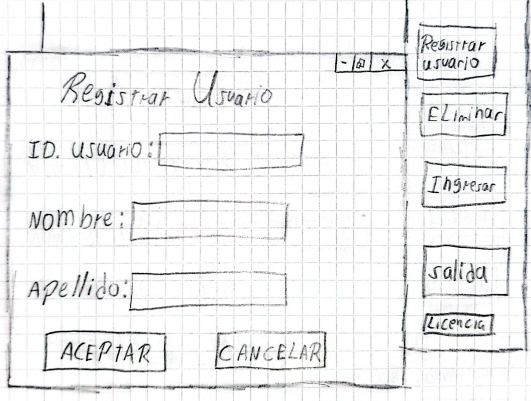 - □ x
Registrar Usuario
ID. usuario:
Nombre:
Apellido:
ACEPTAR CANCELAR
Registrar
usuario
ELiminar
Ingresar
salida
Licencia